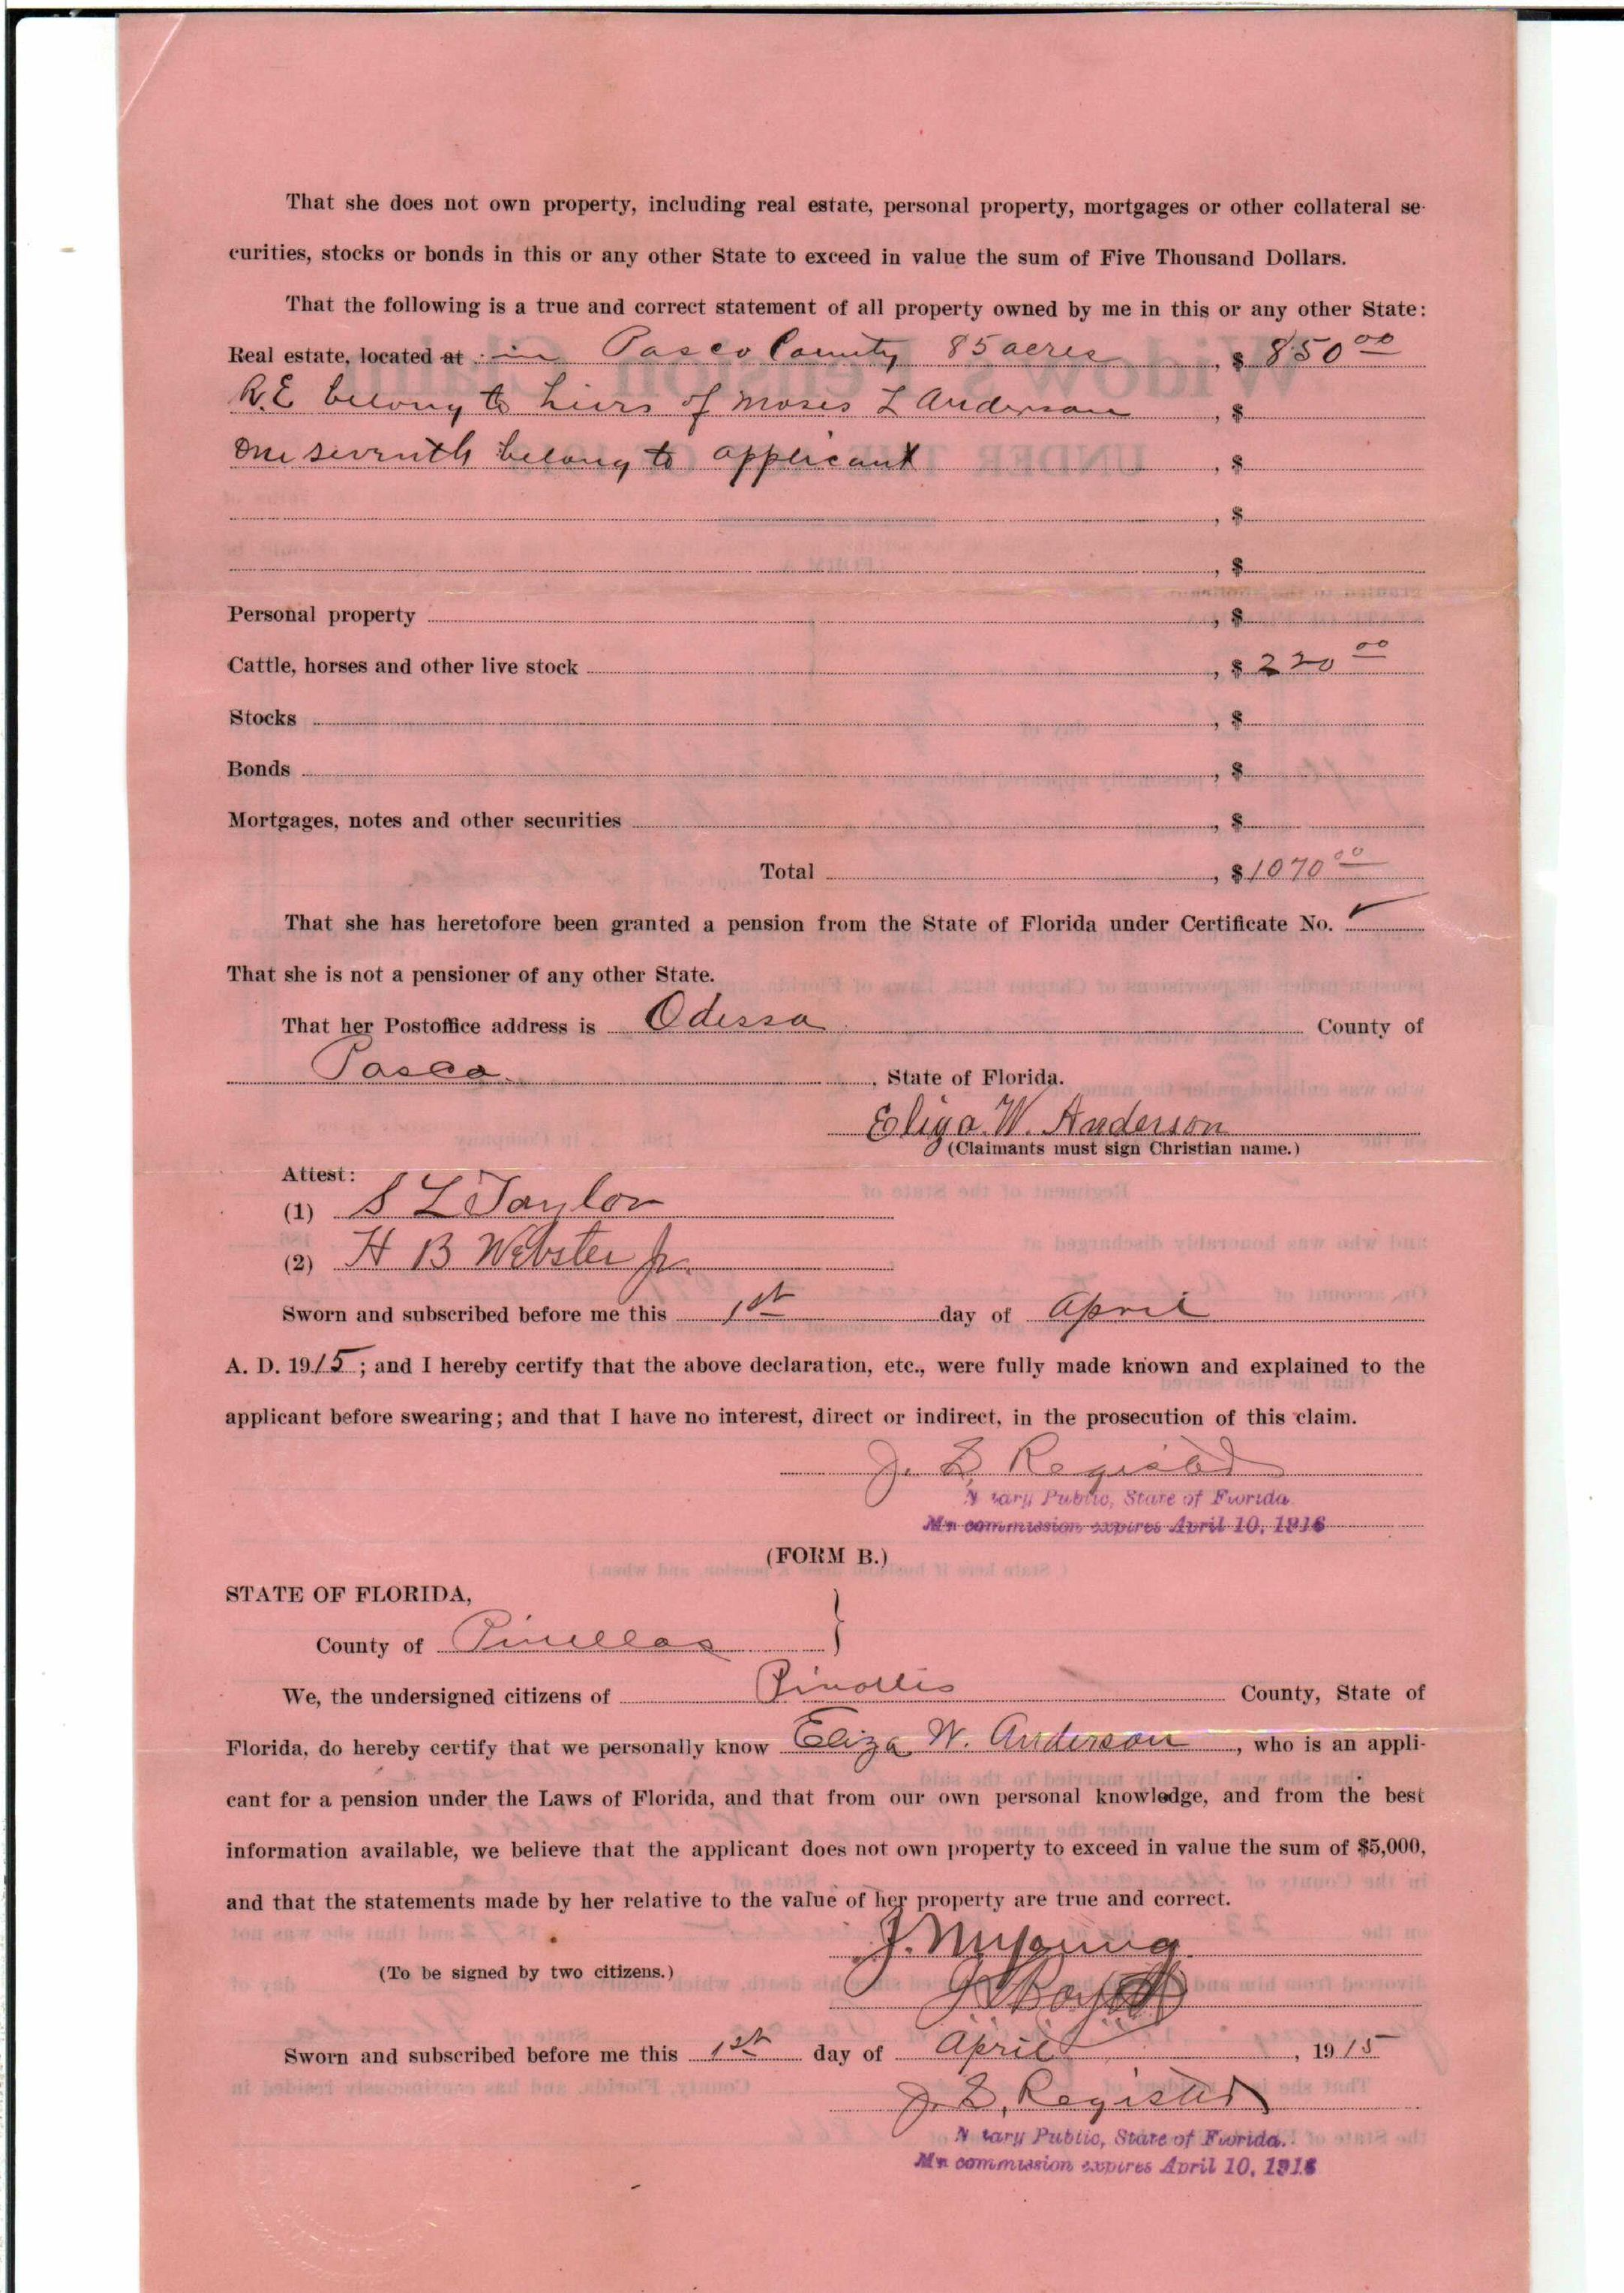 That she does not own property, including real estate, personal property, mortgages or other collateral se-
curities, stocks or bonds in this or any other State to exceed in value the sum of Five Thousand Dollars.
That the following is a true and correct statement of all property owned by me in this or any other State:
Real estate, located at in Pasco County 85 acres, $ 850 00
R.E belong to hiers of Moses L Anderson, $
one seventh belong to applicant, $
, $
, $
Personal property, $
Cattle, horses and other live stock, $ 220 00
Stocks, $
Bonds, $
Mortgages, notes and other securities, $
Total, $ 1070 00
That she has heretofore been granted a pension from the State of Florida under Certificate No.
That she is not a pensioner of any other State.
That her Postoffice address is Odessa County of
Pasco, State of Florida.
Eliza W. Anderson
(Claimants must sign Christian name.)
Attest:
(1) S L Taylor
(2) H B Webster Jr.
Sworn and subscribed before me this 1st day of April
A. D. 1915; and I hereby certify that the above declaration, etc., were fully made known and explained to the
applicant before swearing; and that I have no interest, direct or indirect, in the prosecution of this claim.
J. L. Register
N tary Public, State of Florida.
My commission expires April 10, 1916
(FORM B.)
STATE OF FLORIDA,
County of Pinellas }
We, the undersigned citizens of Pinellis County, State of
Florida, do hereby certify that we personally know Eliza W. Anderson, who is an appli-
cant for a pension under the Laws of Florida, and that from our own personal knowledge, and from the best
information available, we believe that the applicant does not own property to exceed in value the sum of $5,000,
and that the statements made by her relative to the value of her property are true and correct.
J. M. Young
(To be signed by two citizens.)
Sworn and subscribed before me this 1st day of April, 1915
J. L. Register
N tary Public, State of Florida.
My commission expires April 10, 1916